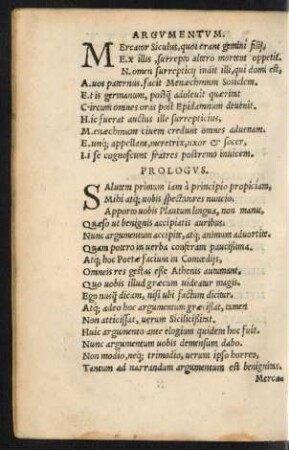 ARGVMENTVM.
MErcator Siculus, quoi erant gemini filij,
E.x illis surrepto altero mors ei oppetit.
N.omen surrepticij indit illi, qui domi est,
A.uos paternus, facit Menæchmum Sosiclem.
E.t is germanum, postq̃ adoleuit quæritat
C.ircum omneis oras post Epidamnum deuenit.
H.ic fuerat auctus ille surrepticius.
M.enæchmum ciuem credunt omnes aduenam.
E.umq; appellant, meretrix, uxor & socer,
I.i se cognoscunt fratres postremò inuicem.
PROLOGVS.
SAlutem primum iam à principio propiciam,
Mihi atq; uobis spectatores nuncio.
Apporto uobis Plautum lingua, non manu,
Quæso ut benignis accipiatis auribus.
Nunc argumentum accipite, atq; animum aduortite,
Quam potero in uerba conferam paucissima.
Atq; hoc Poetæ faciunt in Comœdijs,
Omneis res gestas esse Athenis autumant,
Quo uobis illud græcum uideatur magis.
Ego nusq̃ dicam, nisi ubi factum dicitur.
Atq; adeo hoc argumentum græcissat, tamen
Non atticissat, uerum Sicilicissitat.
Huic argumento ante elogium quidem hoc fuit.
Nunc argumentum uobis demensum dabo.
Non modio, neq; trimodio, uerum ipso horreo,
Tantum ad narrandum argumentum est benignitas.
Mercator